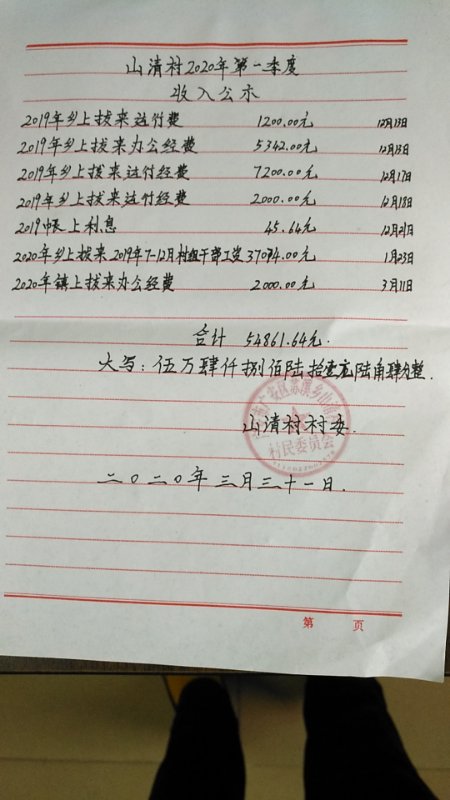 山清村2020年第一季度
收入公示
2019年乡上拨来运行费 1200.00元 12月13日
2019年乡上拨来办公经费 5342.00元 12月13日
2019年乡上拨来运行经费 7200.00元 12月17日
2019年乡上拨来运行经费 2000.00元 12月18日
2019帐上利息 45.64元 12月21日
2020年乡上拨来2019年7-12月村组干部工资37074.00元 1月23日
2020年镇上拨来办公经费 2000.00元 3月11日
合计 54861.64元.
大写：伍万肆仟捌佰陆拾壹元陆角肆分整.
山清村村委.
村民委员会
二0二0年三月三十一日.
第 页